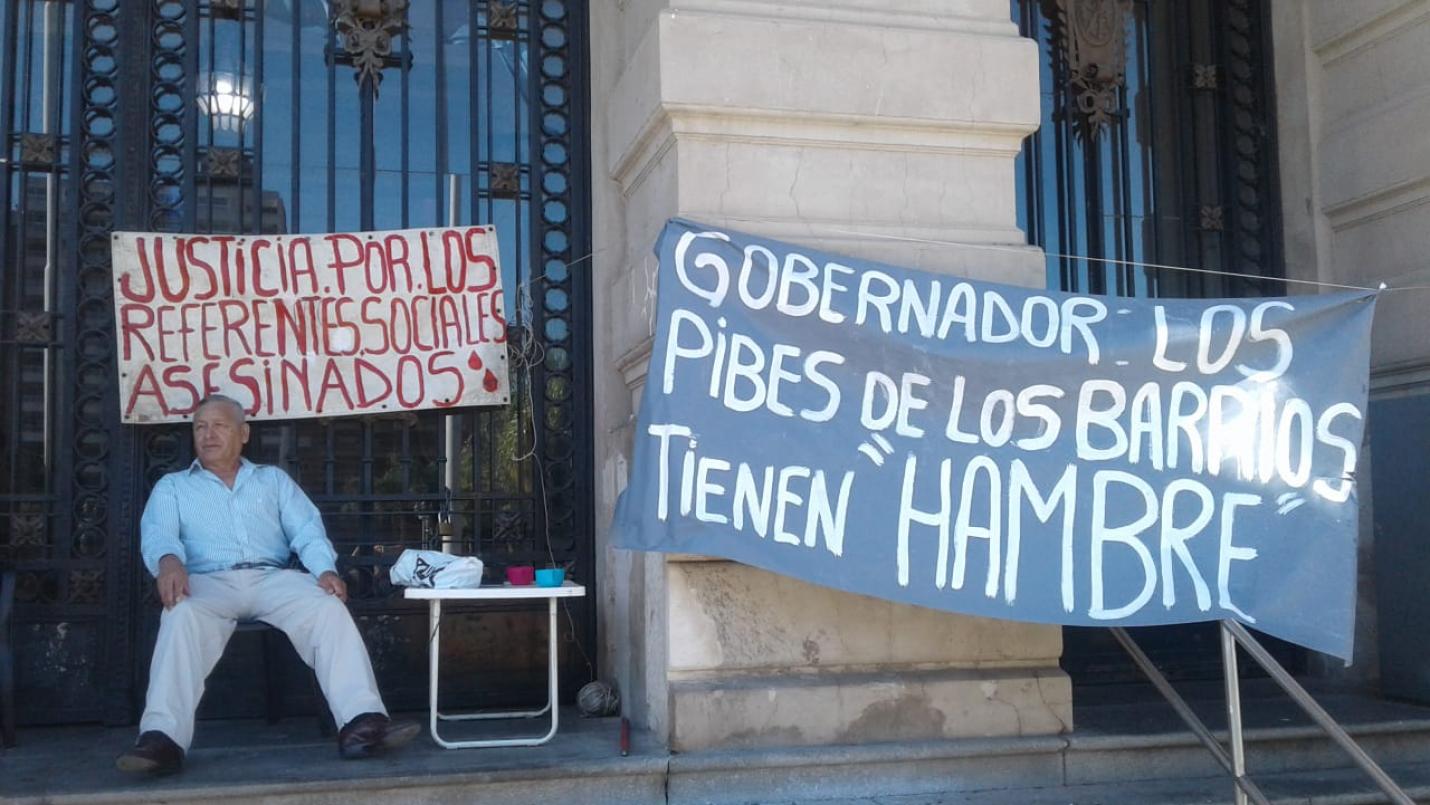 JUSTICIA.POR.LOS
REFERENTES.SOCIALES
ASESINADOS
GOBERNADOR: LOS
PIBES DE LOS BARRIOS
TIENEN "HAMBRE"